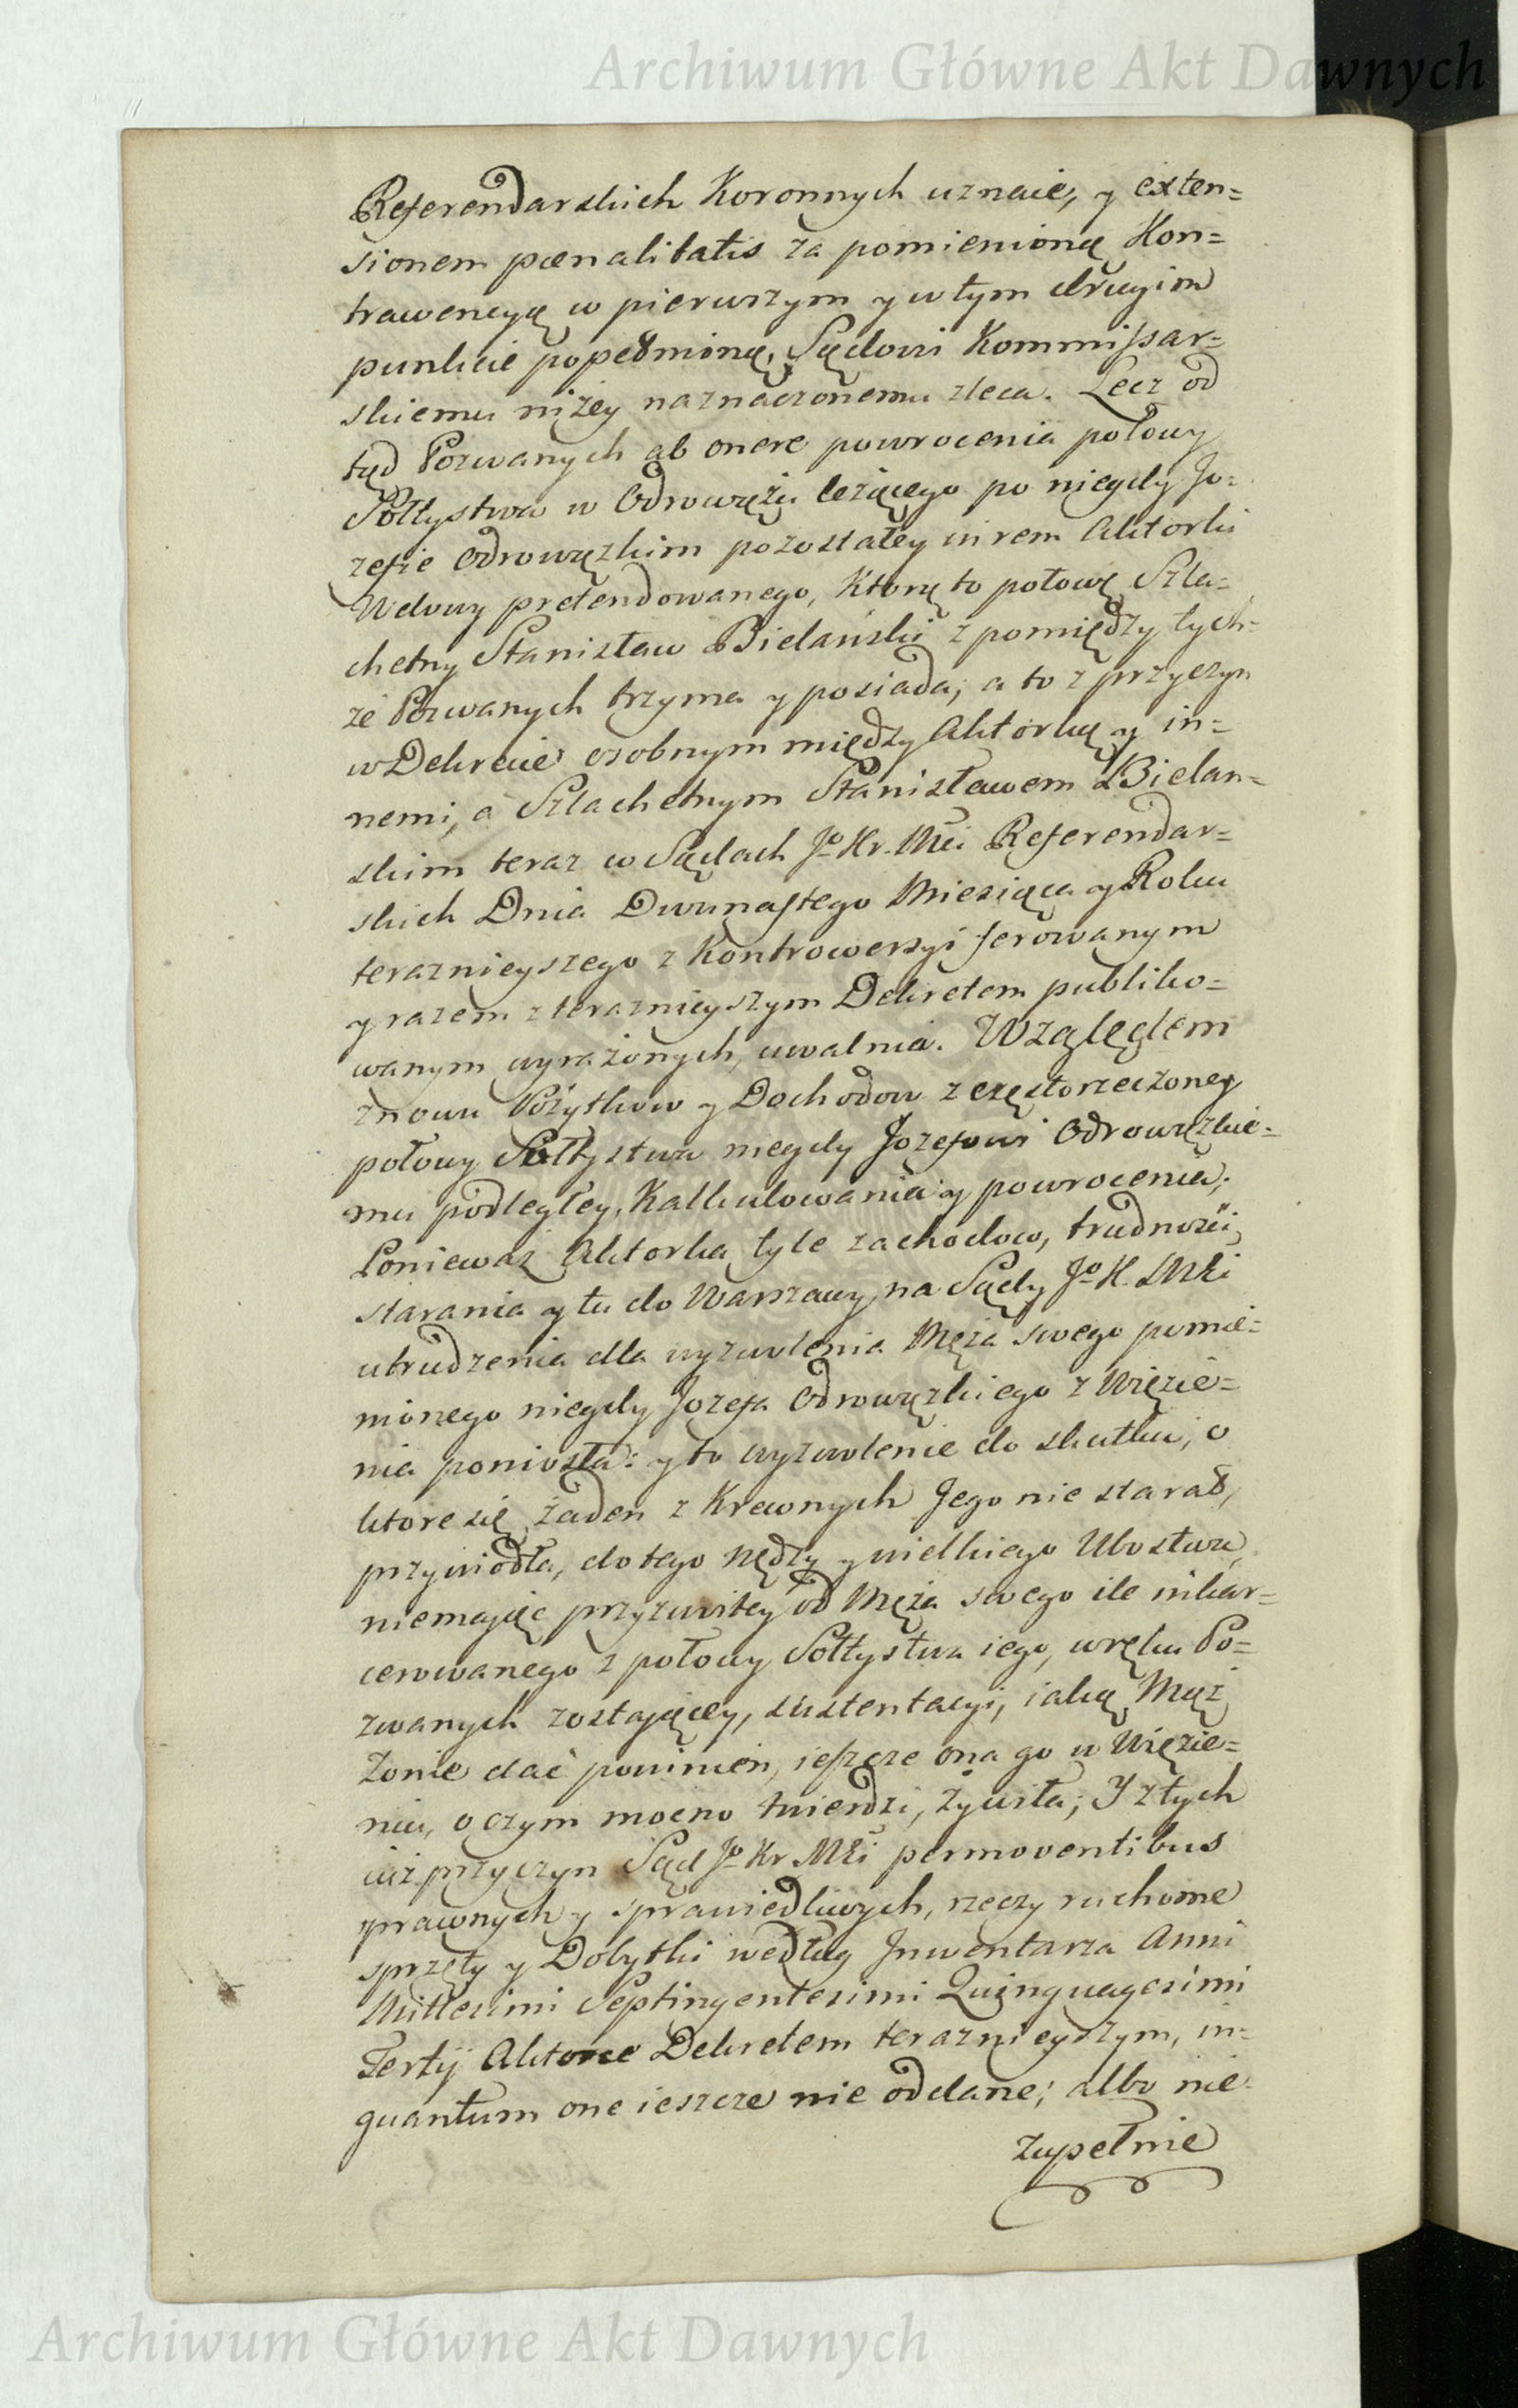 Archiwum Główne Akt Dawnych
Referendarskich Koronnych uznaie, y exten=
sionem pœnalitatis za pomienioną Kon=
trawencyą w pierwszym y w tym drugim
punkcie popełnioną, Sądowi Kommissar=
skiemu niżey naznaczonemu zleca. Lecz od
tąd Pozwanych ab onere powrocenia połowy
Sołtystwa w Odrowążu leżącego po niegdy Jo=
zefie Odrowązkim pozostałey in rem Aktorki
Wdowy pretendowanego, Którą to połowę Szla=
chetny Stanisław Bielański z pomiędzy tych=
że Pozwanych trzyma y posiada; a to z przyczyn
w Dekrecie osobnym między Aktorką y in=
nemi, a Szlachetnym Stanisławem Bielan=
skim teraz w Sądach Jo Kr. Mci Referendar=
skich Dnia Dwunastego Miesiąca y Roku
teraznieyszego z Kontrowersyi ferowanym
y razem z teraznieyszym Dekretem publiko=
wanym wyrażonych, uwalnia. Względem
znowu Pożytkow y Dochodow z częstorzeczoney
połowy Sołtystwa niegdy Jozefowi Odrowązkie=
mu podległey, Kalkulowania y powrocenia;
Ponieważ Aktorka tyle zachodow, trudności,
starania y tu do Warszawy na Sądy Jo K. Mci
utrudzenia dla wyzwolenia Męża swego pomie=
nionego niegdy Jozefa Odrowązkiego z Więzie=
nia poniosła: y to wyzwolenie do skutku, o
ktore się żaden z Krewnych Jego nie starał,
przywiodła, do tego nędzy y wielkiego Ubostwa,
niemając przyzwoitey od Męża swego ile inkar=
cerowanego z połowy Sołtystwa iego, w ręku Po=
zwanych zostającey, sustentacyi, iaką Mąż
Żonie dać powinien, ieszcze ona go w Więzie=
niu, o czym mocno twierdzi, żywiła; Y z tych
iuż przyczyn Sąd Jo Kr Mci permoventibus
prawnych y sprawiedliwych, rzeczy ruchome
sprzęty y Dobytki według Jnwentarza Anni
Millesimi Septingentesimi Quinquagesimi
Tertij Aktorce Dekretem teraznieyszym, in=
quantum one ieszcze nie oddane; albo nie
zupełnie
Archiwum Główne Akt Dawnych